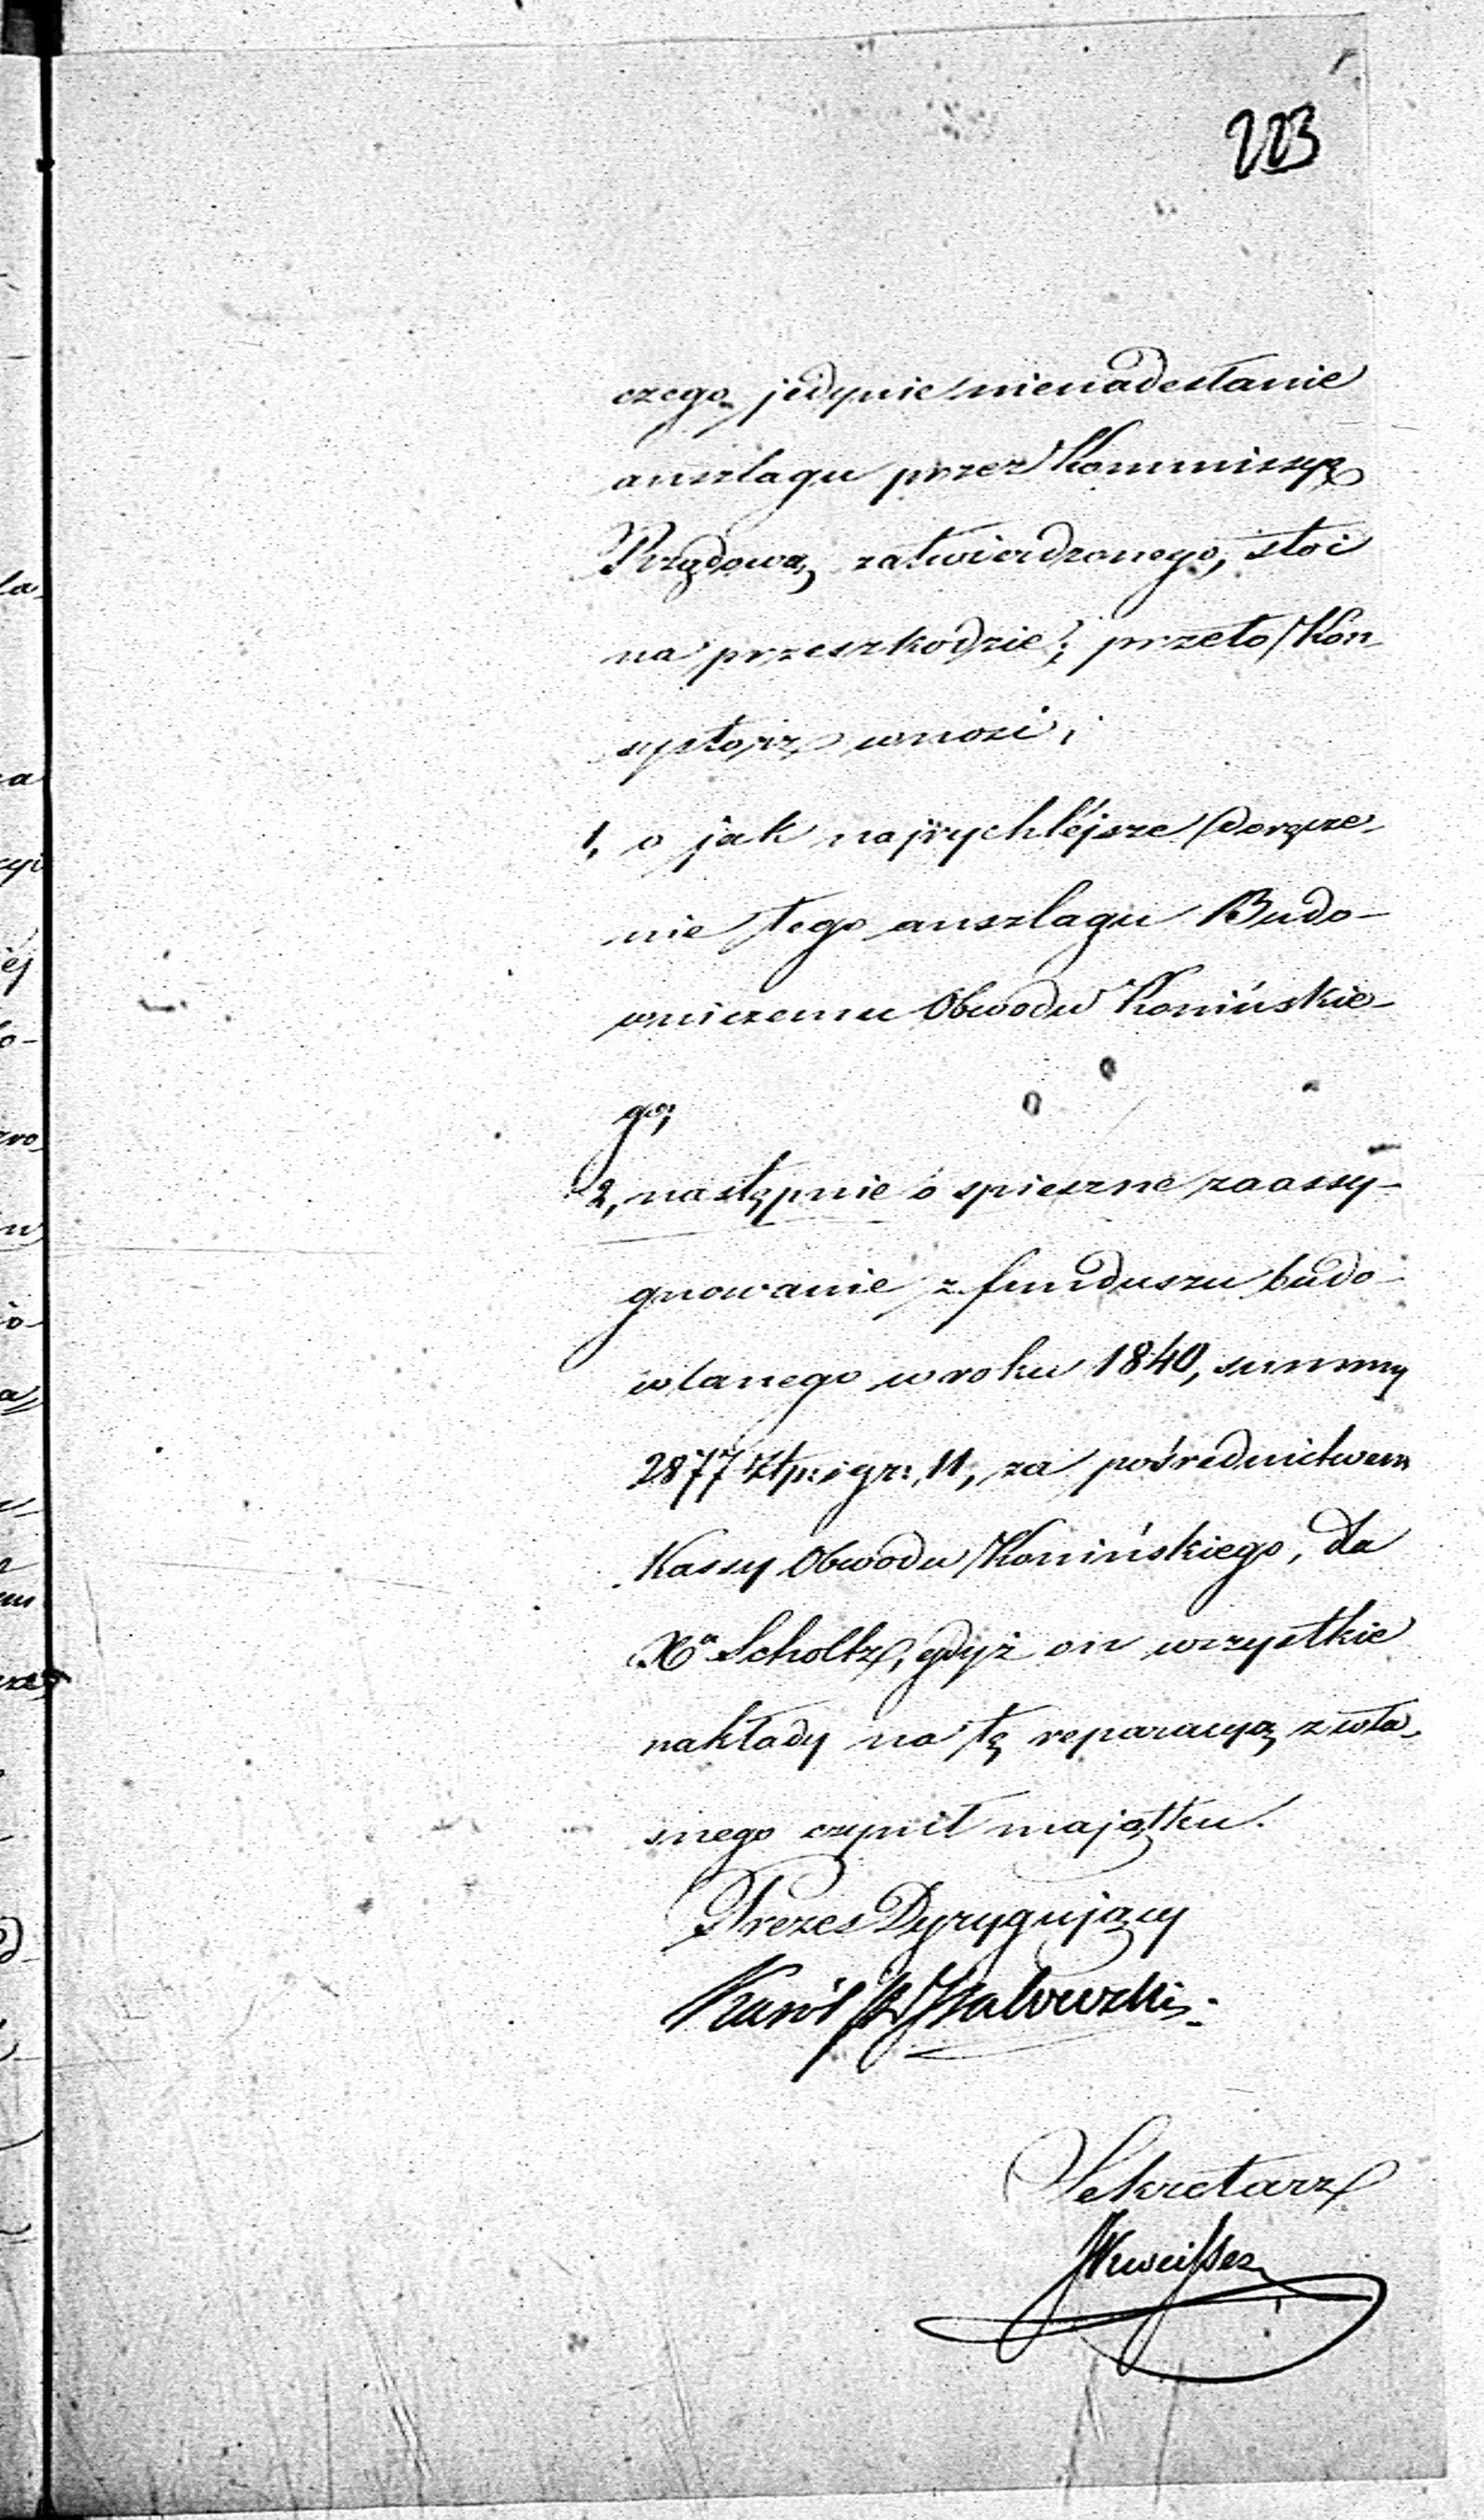 223
czego, jedynie nienadesłanie
anszlagu przez Kommissyą
Rządową zatwierdzonego, stoi
na przeszkodzie; przeto Kon-
systorz wnosi;
1, o jak najrychléjsze doręcze-
nie tego anszlagu Budo-
wniczemu Obwodu Konińskie-
go;
2, następnie o spieszne zaassy-
gnowanie z funduszu budo-
wlanego w roku 1840, summy
2877 Złp: i gr: 11, za pośrednictwem
Kassy Obwodu Konińskiego, dla
Xa Scholtz, gdyż on wszystkie
nakłady na tę reparacyą z wła-
snego czynił majątku.
Prezes Dyrygujący
Karól
Sekretarz